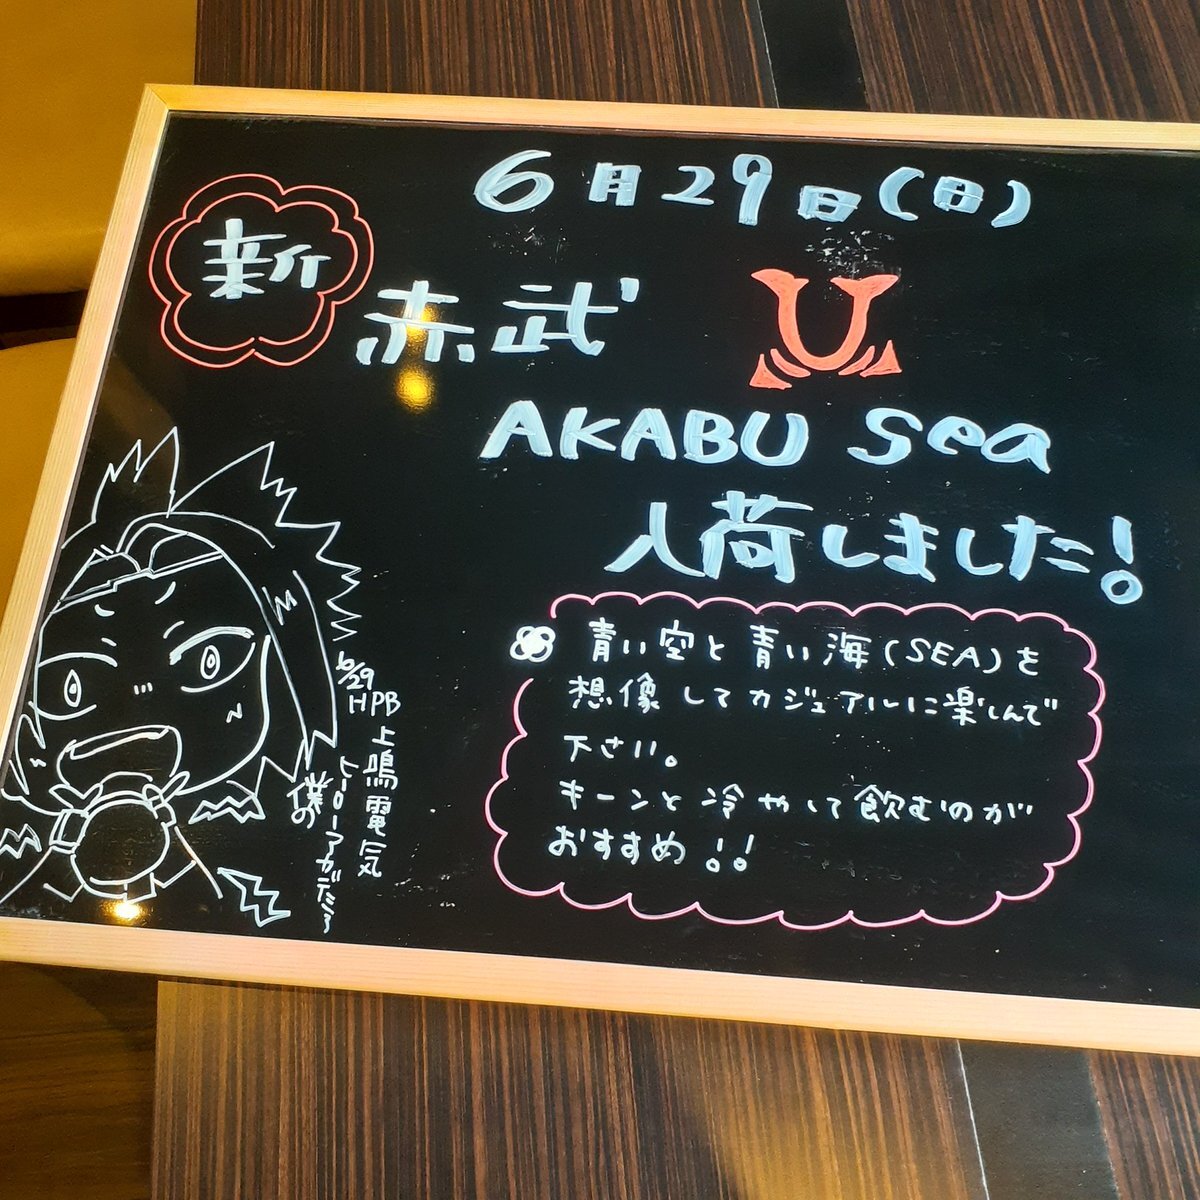 6月29日(日)
新
赤武
AKABU sea
入荷しました!
青い空と青い海(SEA)を
想像してカジュアルに楽しんで
下さい。
キーンと冷やして飲むのが
おすすめ!!
6/29
HPB
上鳴電気
僕の
ヒーローアカデミア